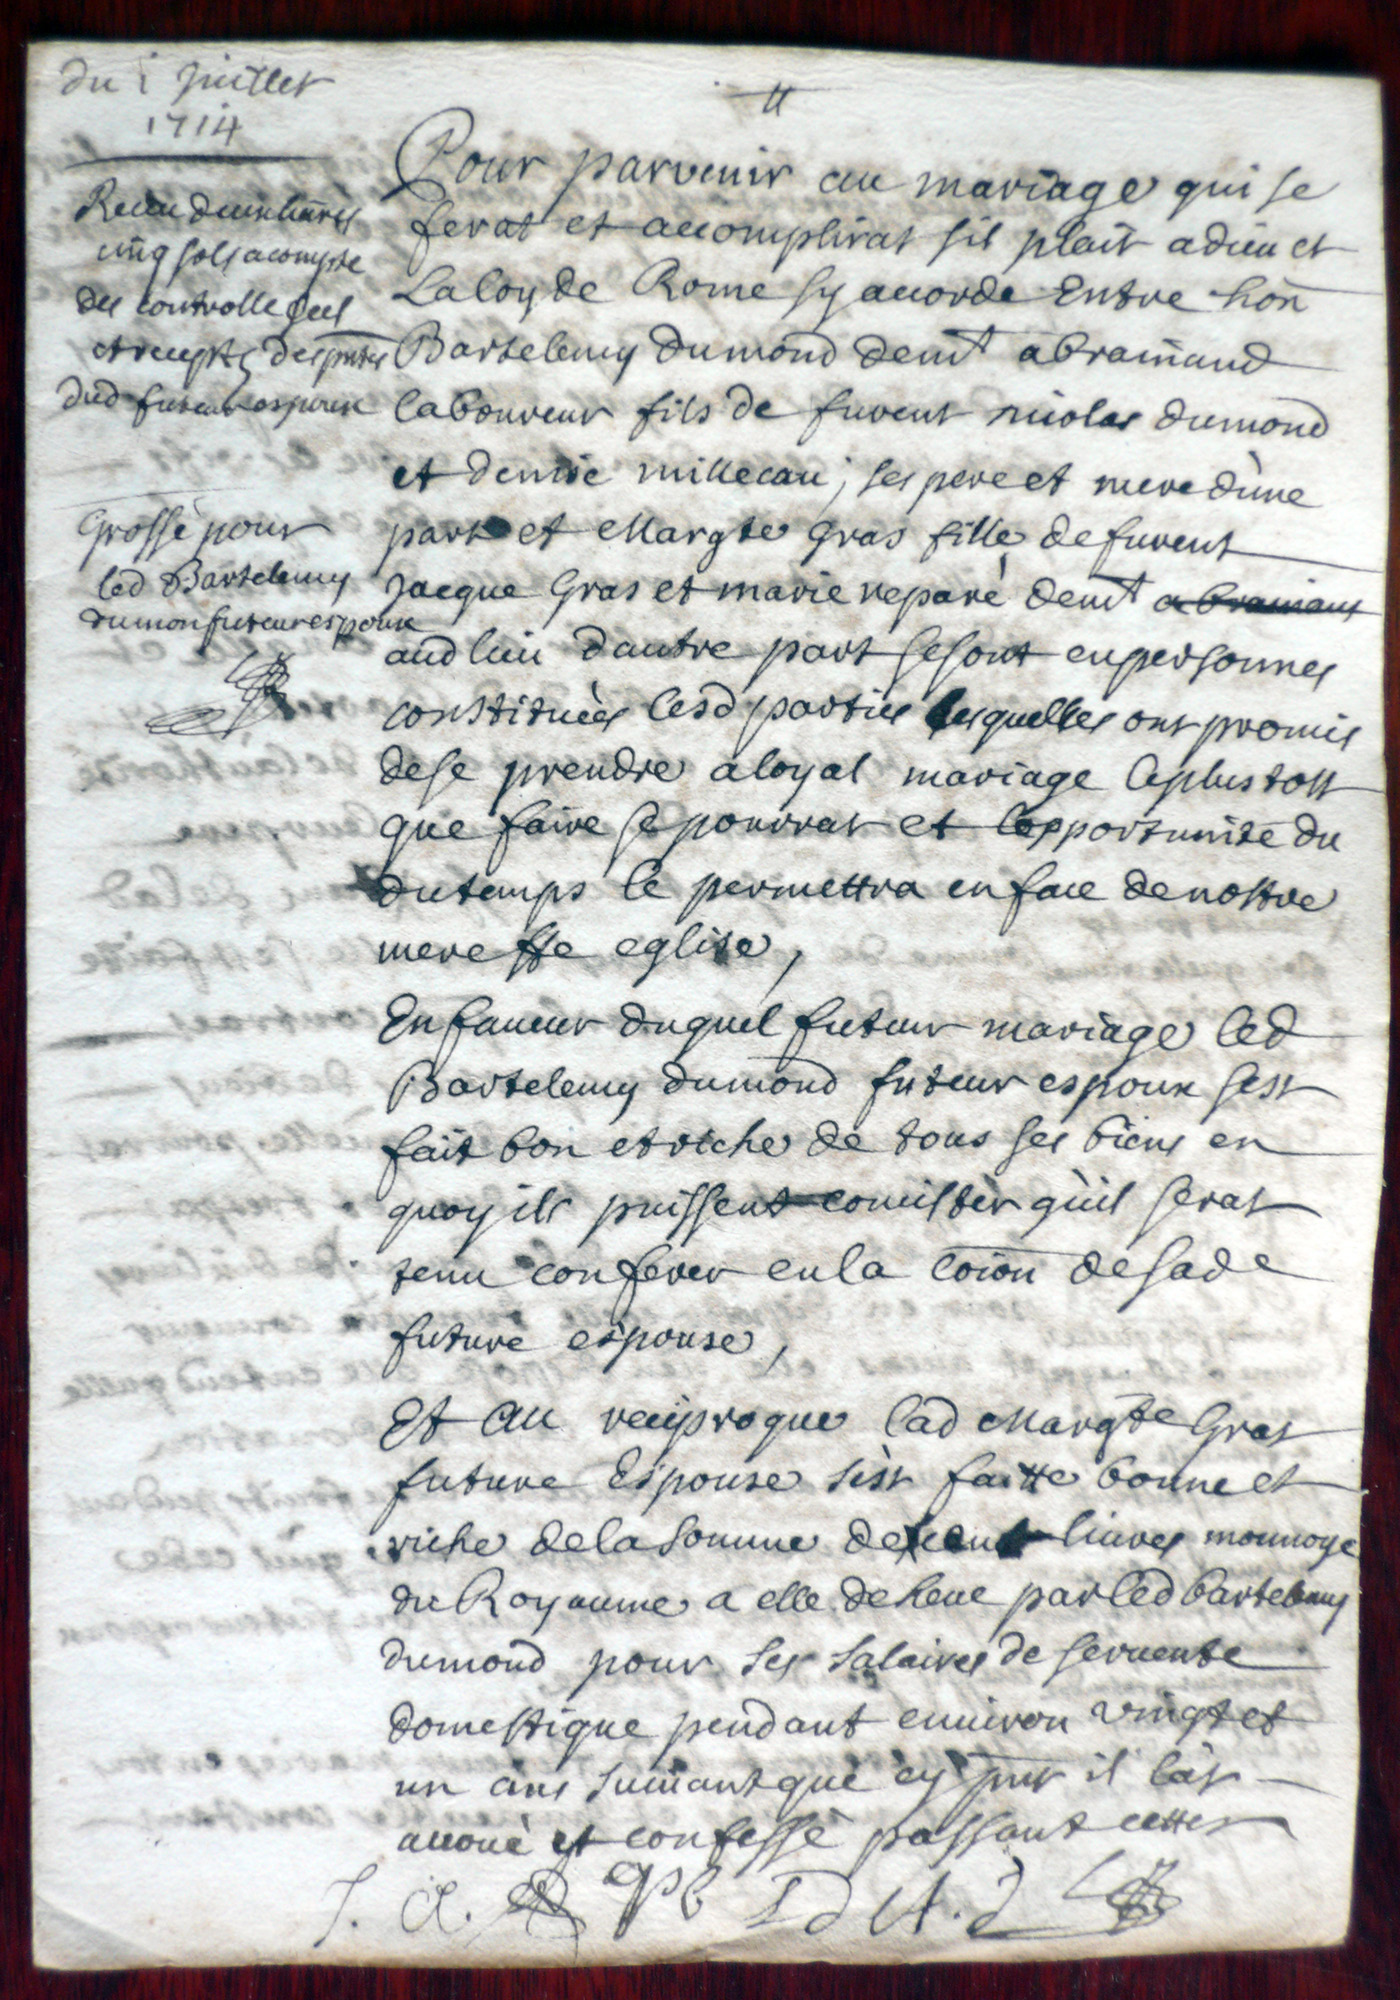 du i Juillet
1714
Receu deux livres
cinq sols acompte
du controlle scel
et recepte
dud futeur espoux
Grossé pour
led Bartelemy
dumon futeur espoux
Pour parvenir au mariage qui se
ferat et accomplirat sil plait a dieu et
La loy de Rome sy accorde Entre hon
Bartelemy dumond demt a bramand
laboureur fils de furent nicolas dumond
et denise millecau ; ses pere et mere d'une
part et Margte Gras fille de furent
Jacque Gras et marie reparé demt a bramant
aud lieu dautre part se sont en personnes
constituées lesd parties lesquelles ont promis
de se prendre a loyal mariage le plus tost
que faire se pourrat et lopportunite du
du temps le permettra en face de nostre
mere ste eglise,
En faveur duquel futeur mariage led
Bartelemy dumond futeur espoux sest
fait bon et riche de tous ses biens en
quoy ils puissent concister qu'il serat
tenu conferer en la coion de sade
future espouse,
Et au reciproque lad Margte Gras
future Espouse s'est faitte bonne et
riche de la somme de cent livres monnoye
du Royaume a elle deheue par led bartelemy
dumond pour ses salaires de servente
domestique pendant environ vingt et
un ans suivant que cy pnt il lat
avoué et confessé passant cettes